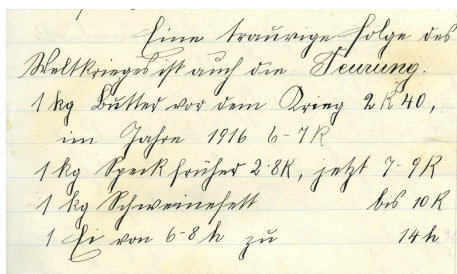 Eine traurige Folge des
Weltkrieges ist auch die Teurung.
1 kg Butter vor dem Krieg 2 K 40,
im Jahre 1916 6-7 K
1 kg Speck früher 2·8K, jetzt 7-9 K
1 kg Schweinefett bis 10 K
1 Ei von 6-8 h zu 14 h